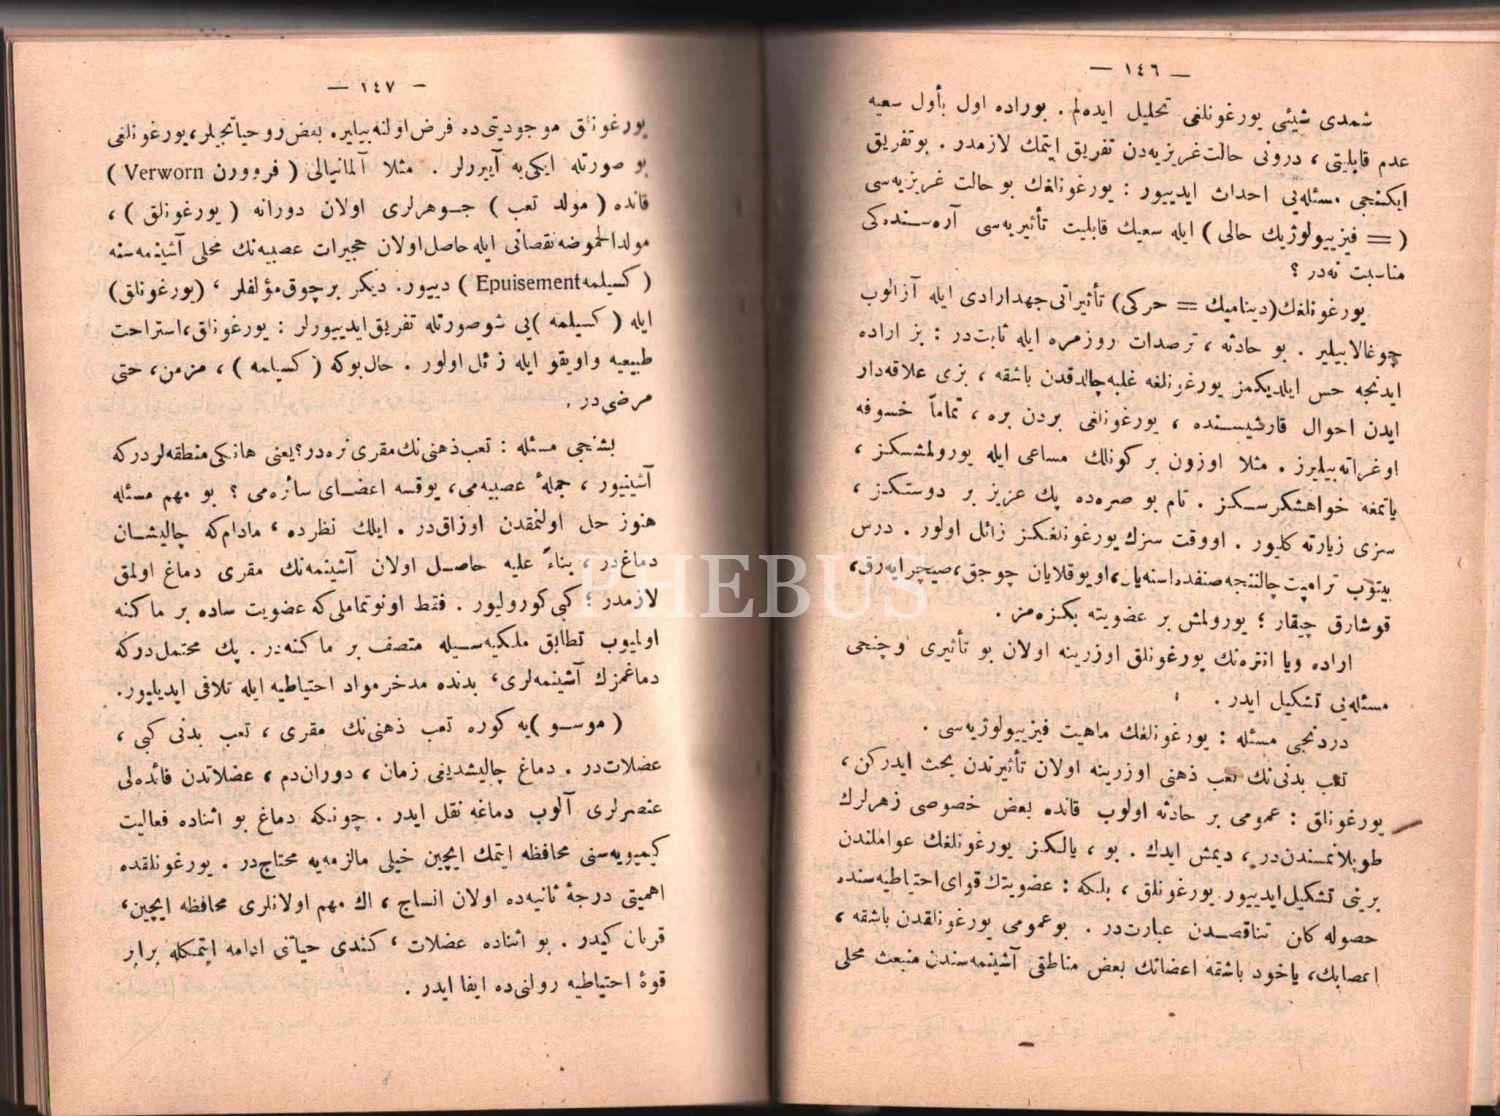 — ١٤٦ —
شمدی شیئی یورغونلغی تحلیل ایده‌لم . بوراده اول بأول سعیه
عدم قابلیتی ، درونی حالت غریزیه‌دن تفریق ایتمك لازمدر . بو تفریق
ایكنجی مسئله‌یی احداث ایدییور : یورغونلغك بو حالت غریزیه‌سی
( = فیزییولوژیك حالی ) ایله سعیك قابلیت تأثیریه‌سی آره‌سنده‌كی
مناسبت نه‌در ؟
یورغونلغك (دینامیك = حركی) تأثیراتی جهد ارادی ایله آزالوب
چوغالابیلیر . بو حادثه ، ترصدات روزمره ایله ثابت‌در : بز اراده
ایدنجه حس ایلدیكمز یورغونلغه غلبه چالدقدن باشقه ، بزی علاقه‌دار
ایدن احوال قارشیسنده ، یورغونلغی بردن بره ، تماماً خسوفه
اوغراته‌بیلیرز . مثلا اوزون بر كونلك مساعی ایله یورولمشسكز ،
یاتمغه خواهشكرسكز . تام بو صره‌ده پك عزیز بر دوستكز ،
سزی زیارته كلیور . او وقت سزك یورغونلغكز زائل اولور . درس
بیتوب ترامپت چالنجه صنفده اسنه‌یان ، اویوقلایان چوجق ، صیچرایه‌رق ،
قوشارق چیقار ؛ یورولمش بر عضویته بكزه‌مز .
اراده ویا انتره‌نك یورغونلق اوزرینه اولان بو تأثیری اوچنجی
مسئله‌یی تشكیل ایدر .
دردنجی مسئله : یورغونلغك ماهیت فیزییولوژیه‌سی .
تعب بدنی‌نك تعب ذهنی اوزرینه اولان تأثیرندن بحث ایدركن ،
یورغونلق : عمومی بر حادثه اولوب قانده بعض خصوصی زهرلرك
طوپلانمسندن‌در ، دیمش ایدك . بو ، یالكز یورغونلغك عواملندن
برینی تشكیل ایدییور یورغونلق ، بلكه : عضویتك قوای احتیاطیه‌سنده
حصوله كلن تناقصدن عبارت‌در . بو عمومی یورغونلقدن باشقه ،
اعصابك ، یاخود باشقه اعضانك بعض مناطقی آشینمه‌سندن منبعث محلی
— ١٤٧ —
یورغونلق موجودیتی‌ده فرض اولنه‌بیلیر . بعض روحیاتجیلر ، یورغونلغی
بو صورتله ایكی‌یه آییررلر . مثلا آلمانیالی ( فروورن Verworn )
قانده ( مولد تعب ) جوهرلری اولان دورانه ( یورغونلق ) ،
مولدالحموضه نقصانی ایله حاصل اولان حجیرات عصبیه‌نك محلی آشینمه‌سنه
( كسیلمه Epuisement ) دییور . دیكر بر چوق مؤلفلر ، (یورغونلق)
ایله ( كسیلمه ) یی شو صورتله تفریق ایدییورلر : یورغونلق ، استراحت
طبیعیه و اویقو ایله زائل اولور . حال بوكه ( كسیلمه ) ، مزمن ، حتی
مرضی‌در .
بشنجی مسئله : تعب ذهنی‌نك مقری نره‌در ؟ یعنی هانكی منطقه‌لردركه
آشینیور ، جملهٔ عصبیه‌می ، یوقسه اعضای سائره‌می ؟ بو مهم مسئله
هنوز حل اولنمقدن اوزاق‌در . ایلك نظرده ، مادام‌كه چالیشان
دماغ‌در ، بناءً علیه حاصل اولان آشینمه‌نك مقری دماغ اولمق
لازمدر ؛ كبی كورولیور . فقط اونوتماملی كه عضویت ساده بر ماكنه
اولمیوب تطابق ملكیه‌سیله متصف بر ماكنه‌در . پك محتمل‌دركه
دماغمزك آشینمه‌لری ، بدنده مدخر مواد احتیاطیه ایله تلافی ایدیلیور .
( موسو ) یه كوره تعب ذهنی‌نك مقری ، تعب بدنی كبی ،
عضلات‌در . دماغ چالیشدیغی زمان ، دوران دم ، عضلاتدن فائده‌لی
عنصرلری آلوب دماغه نقل ایدر . چونكه دماغ بو اثناده فعالیت
كیمیویه‌سنی محافظه ایتمك ایچین خیلی مالزمه‌یه محتاج‌در . یورغونلقده
اهمیتی درجهٔ ثانیه‌ده اولان انساج ، اك مهم اولانلری محافظه ایچین ،
قربان كیدر . بو اثناده عضلات ، كندی حیاتنی ادامه ایتمكله برابر
قوهٔ احتیاطیه رولنی‌ده ایفا ایدر .
PHEBUS